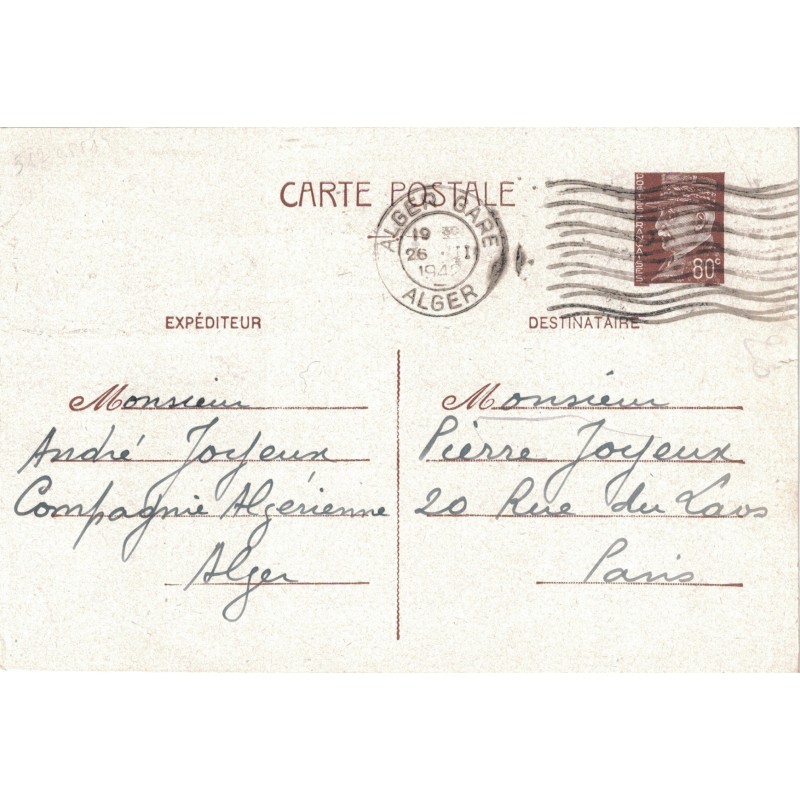 CARTE POSTALE
ALGER GARE
19 30
26 II
1942
ALGER
POSTES FRANÇAISES
80c
EXPÉDITEUR
Monsieur
André Joyeux
Compagnie Algérienne
Alger
DESTINATAIRE
Monsieur
Pierre Joyeux
20 Rue du Laos
Paris